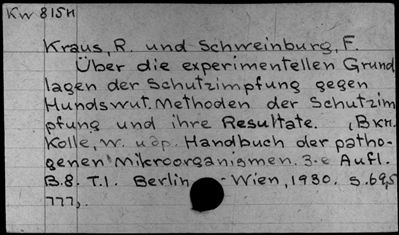 Kw 815н
Kraus, R. und Schweinburg, F.
Über die experimentellen Grund
lagen der Schutzimpfung gegen
Hundswut. Methoden der Schutzim
pfung und ihre Resultate. (Вкн.
Kolle, W. и др. Handbuch der patho-
genen Mikroorganismen. 3-е Aufl.
B.8. T.1. Berlin - Wien, 1930. S. 695
777).